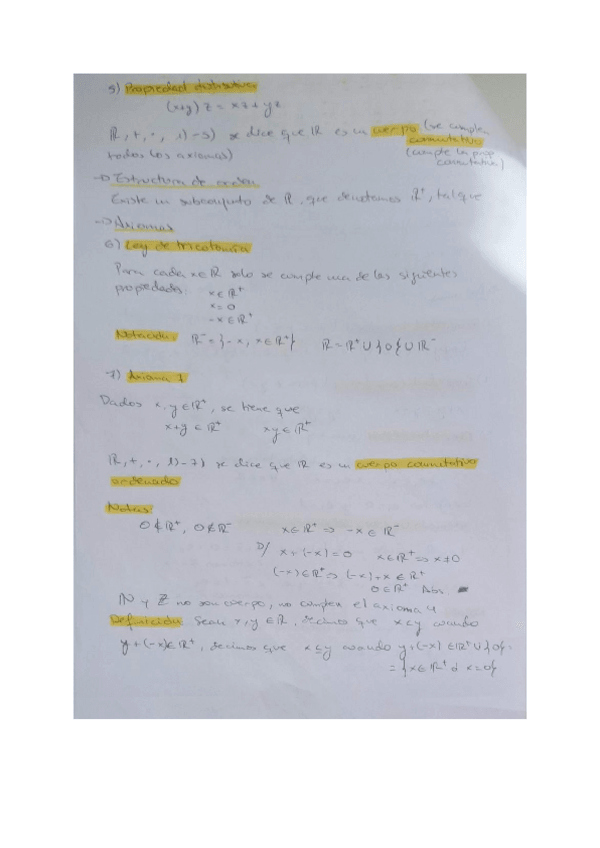 5) Propiedad distributiva
(x+y) z = xz + yz
ℝ, +, ·, 1)-5) se dice que ℝ es un cuerpo (se cumplen
conmutativo
todos los axiomas)
(cumple la prop
conmutativa)
→ Estructura de orden
Existe un subconjunto de ℝ, que denotamos ℝ⁺, tal que
→ Axiomas
6) Ley de tricotomía
Para cada x∈ℝ solo se cumple una de las siguientes
propiedades:
x∈ℝ⁺
x=0
-x∈ℝ⁺
Notación: ℝ⁻={-x, x∈ℝ⁺} ℝ=ℝ⁺∪{0}∪ℝ⁻
7) Axioma 7
Dados x,y∈ℝ⁺, se tiene que
x+y∈ℝ⁺ xy∈ℝ⁺
ℝ, +, ·, 1)-7) se dice que ℝ es un cuerpo conmutativo
ordenado
Notas:
0∉ℝ⁺, 0∉ℝ⁻ x∈ℝ⁺ ⇒ -x∈ℝ⁻
D/ x+(-x)=0 x∈ℝ⁺ ⇒ x≠0
(-x)∈ℝ⁺ ⇒ (-x)+x∈ℝ⁺
0∈ℝ⁺ Abs.
ℕ y ℤ no son cuerpo, no cumplen el axioma 4
Definición Sean x,y∈ℝ, decimos que x<y cuando
y+(-x)∈ℝ⁺, decimos que x≤y cuando y+(-x)∈ℝ⁺∪{0}=
={x∈ℝ⁺ ó x=0}